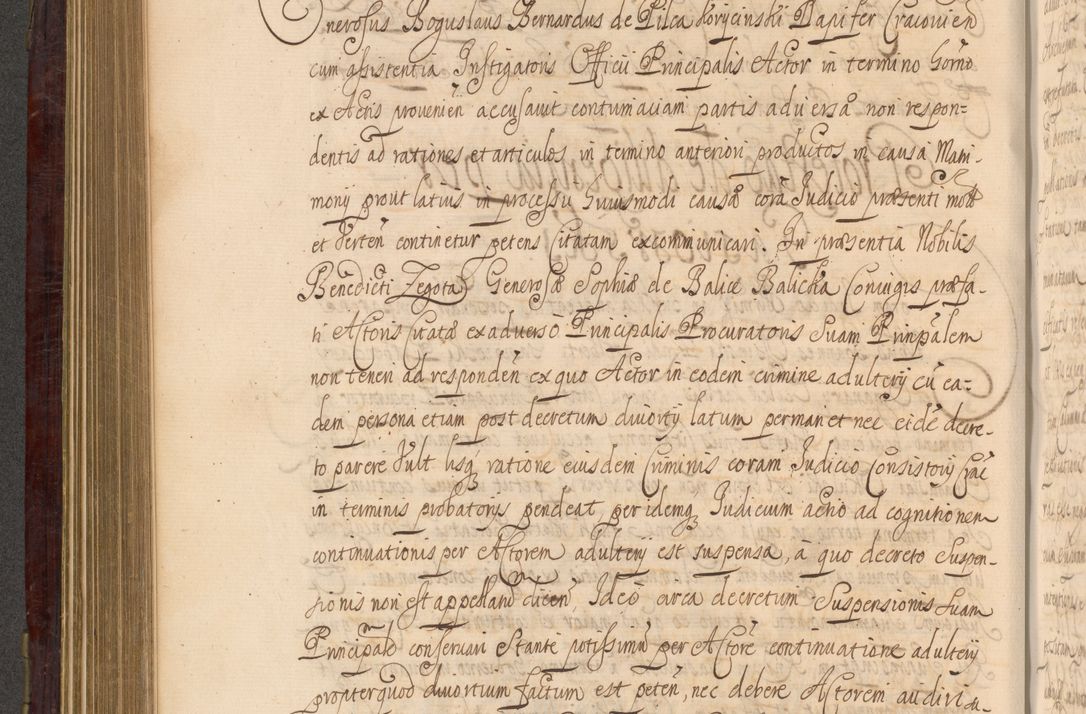 nerosus Boguslaus Bernardus de Pilca Korycinski Dapifer Cracovien
cum assistentia Instigatoris Officii Principalis Actor in termino horno
ex Actis provenien̄ accusavit contumaciam partis adversæ non respon=
dentis ad rationes et articulos in termino anteriori productos in causa Matri-
monÿ prout latius in processu huiusmodi causæ corā Judicio præsenti mot
et Verten̄ continetur petens Citatam excommunicari. In præsentia Nobilis
Benedicti Zegota Generosæ Sophiæ de Balice Balicka Coniugis præfa-
ti Actoris Citatæ ex adverso Principalis Procuratoris Suam Prinpālem
non teneri ad responden̄ ex quo Actor in eodem crimine adulterÿ cū ea-
dem persona etiam post decretum divortÿ latum permanet nec eidē decre-
to parere Vult lisq́ ratione eiusdem Criminis coram Judicio Consistorÿ Grāe
in terminis probatorÿs pendeat, per idemq́ Judicium actio ad cognitionem
continuationis per Actorem adulterÿ est suspensa, à quo decreto Suspen-
sionis non est appelland dicen̄, Ideo circa decretum Suspensionis Suam
Principalē conservari Stante potissimū per Actorē continuatione adulterÿ
propter quod divortium factum est peten̄, nec debere Actorem audiri a-